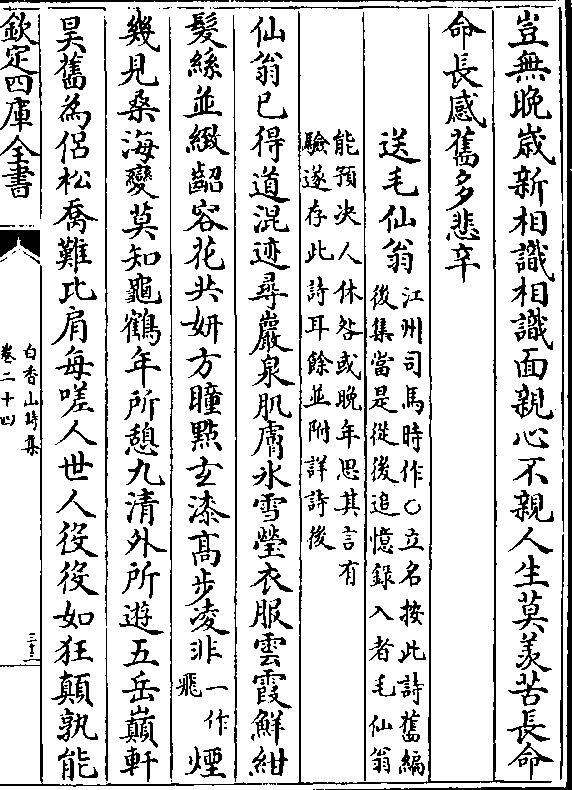 豈無晚歲新相識相識面親心不親人生莫羨苦長命
命長感舊多悲辛
送毛仙翁
江州司馬時作○立名按此詩舊編
後集當是從後追憶錄入者毛仙翁
能預决人休咎或晚年思其言有
驗遂存此詩耳餘並附詳詩後
仙翁已得道混迹尋巖泉肌膚氷雪瑩衣服雲霞鮮紺
髮絲並緻齠容花共妍方瞳㸃玄漆高步凌非
一作
飛
煙
幾見桑海變莫知龜鶴年所憩九清外所遊五岳巔軒
昊舊為侶松喬難比肩每嗟人世人役役如狂顛孰能
欽定四庫全書
白香山詩集
卷二十四
三十三